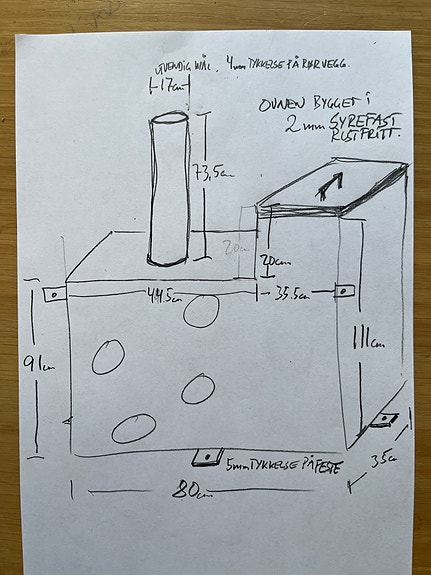 UTVENDIG MÅL. 4mm TYKKELSE PÅ RØRVEGG.
17cm
OVNEN BYGGET I
2mm SYREFAST
RUSTFRITT.
73,5cm
20cm
20cm
44.5cm
35.5cm
91cm
111cm
5mm TYKKELSE PÅ FESTE
35cm
80cm